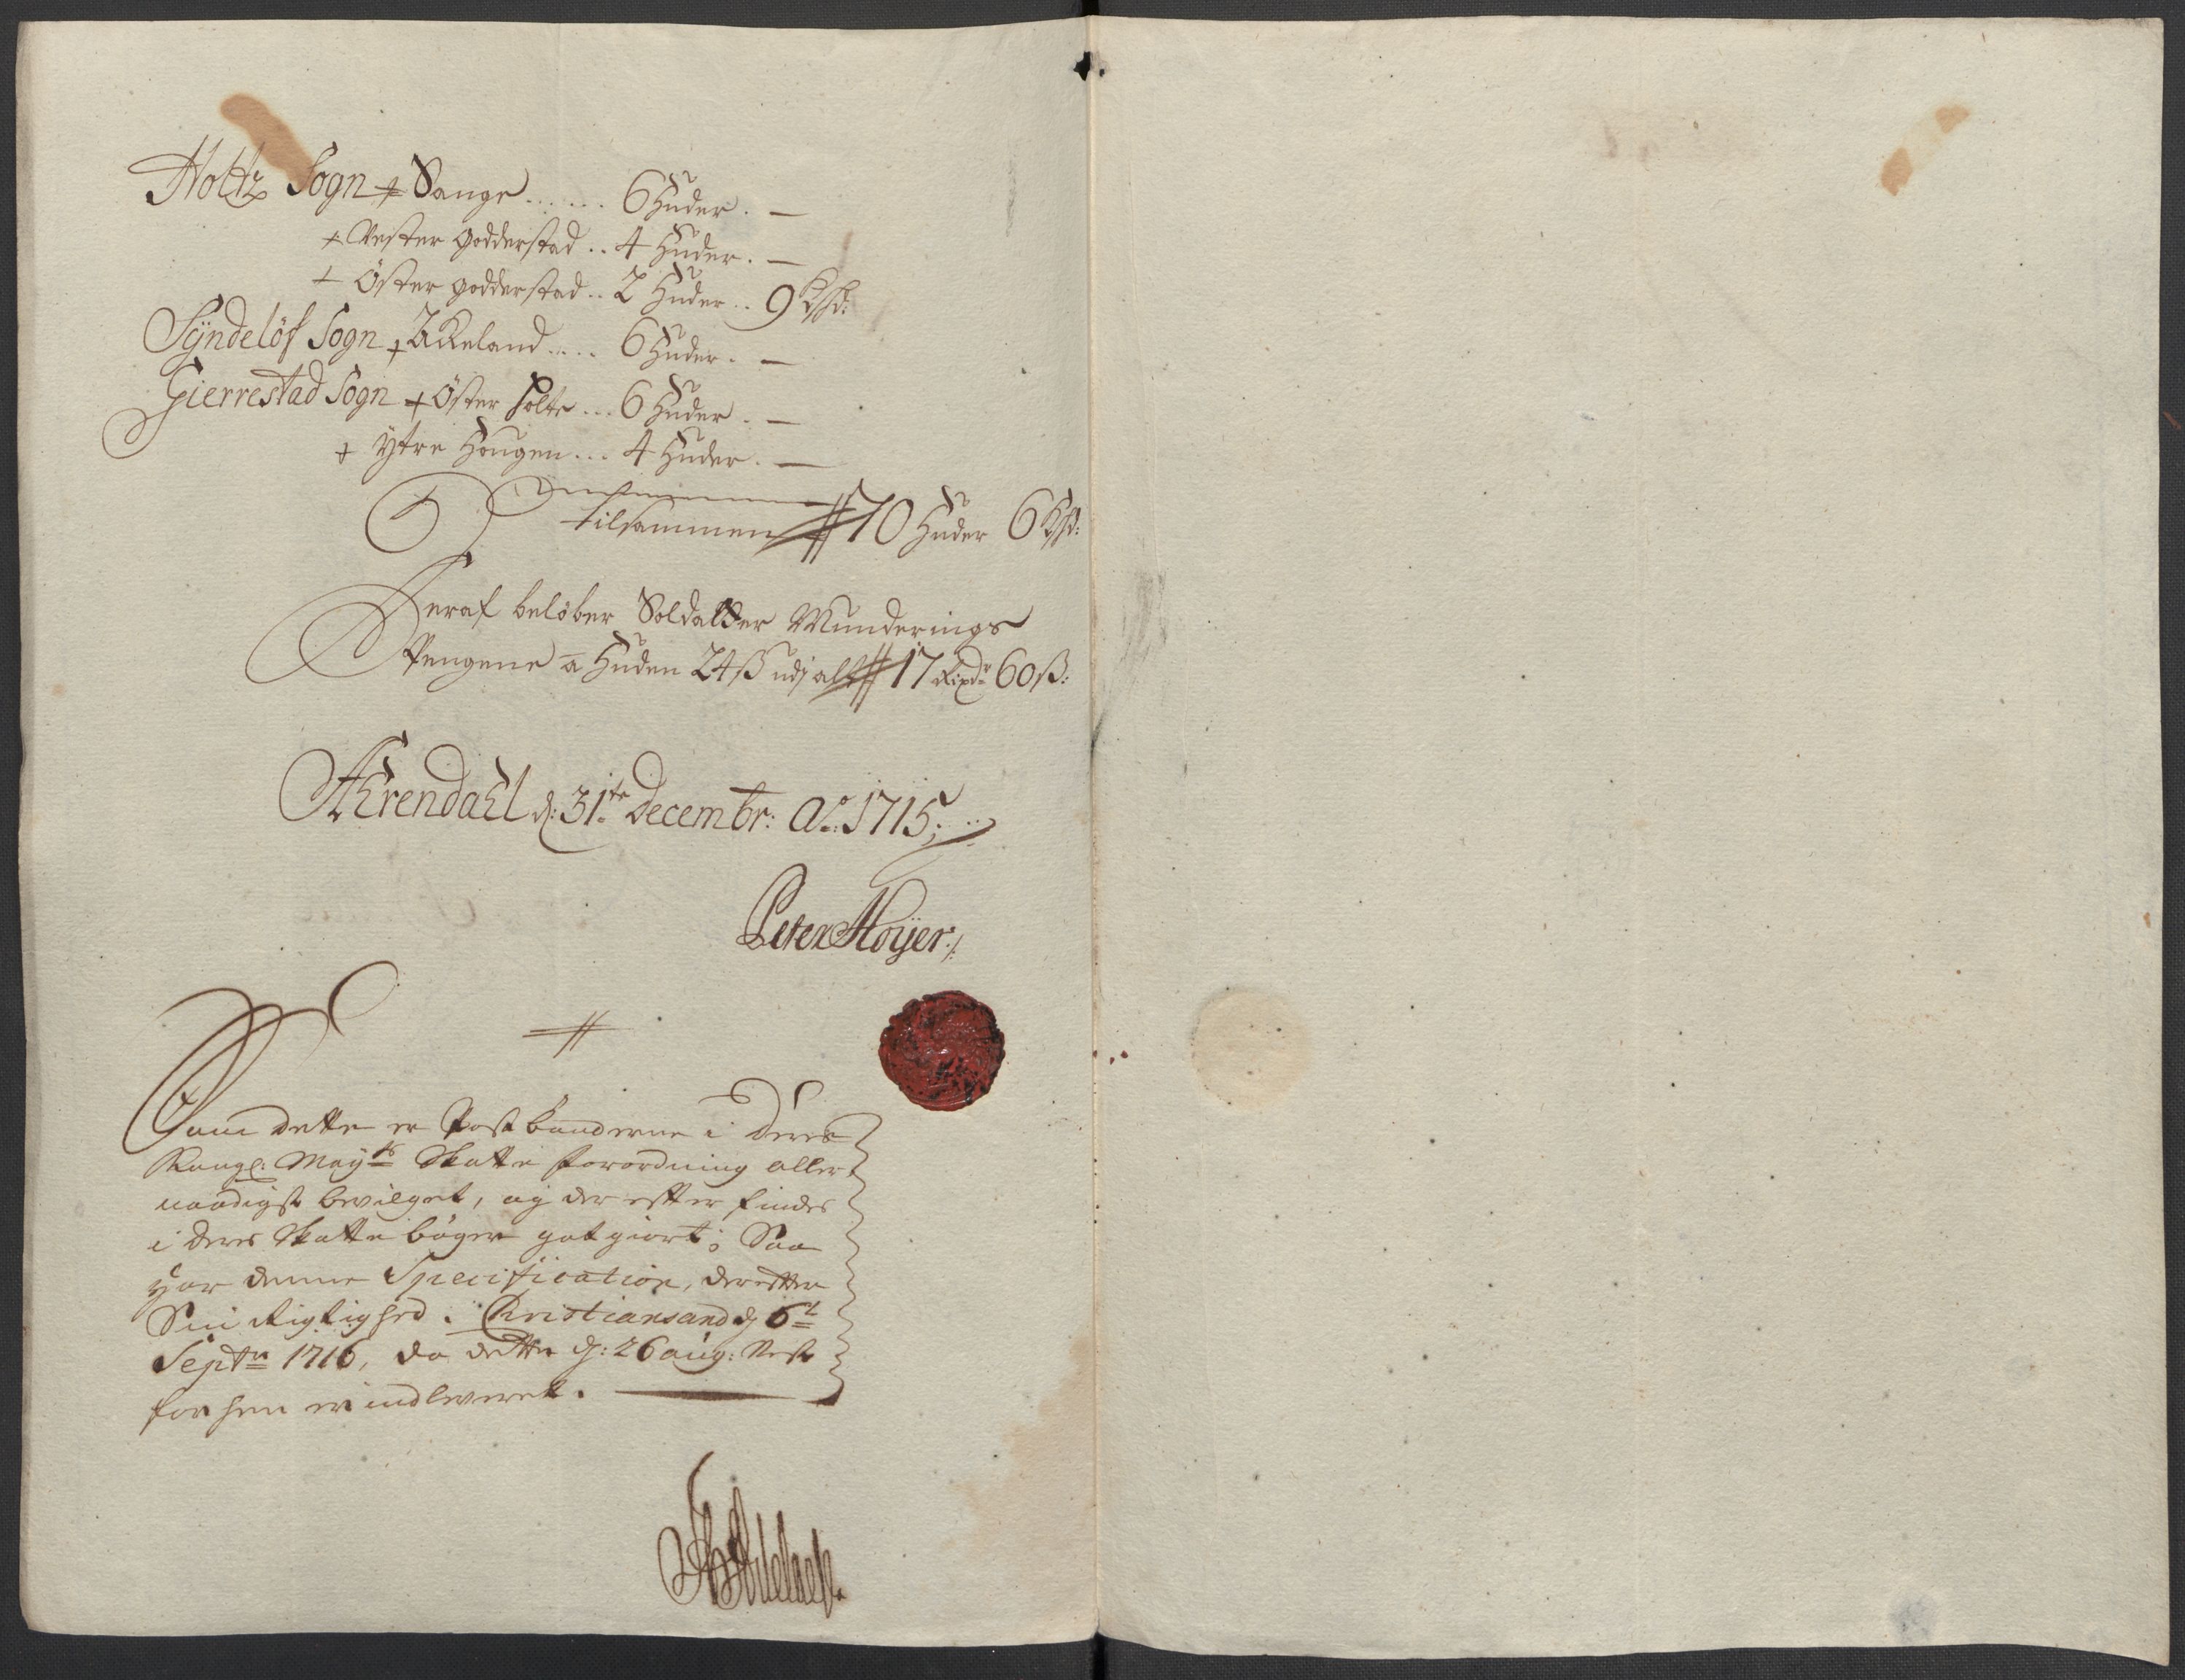 Holtz Sogn + Sange ...... 6 Huder. —
+ Vester Godderstad .. 4 Huder. —
+ Öster Godderstad .. 2 Huder .. 9
Syndelöf Sogn + Akeland ..... 6 Huder. —
Gierrestad Sogn + Öster Holte ... 6 Huder. —
+ Ytre Hougen ... 4 Huder. —
tilsammen 70 Huder 6
Heraf belöber Soldatter Munderings
Pengene a Huden 24 ß udj alt 17 Rixdr 60 ß:
AErendaEl d: 31te Decembr: Ao: 1715;
Peter Höyer
Som dette er Postbønderne i deres
Kongl: Mayts Skatte forordning aller
naadigst bevilget, og der efter findes
i deres Skatte bøger gotgiort; Saa
har denne Specification, der efter
Sin Rigtighed. Christiansand d 6t
Septr 1716, da dette d: 26 aug: Nest
for hen er indleveret.